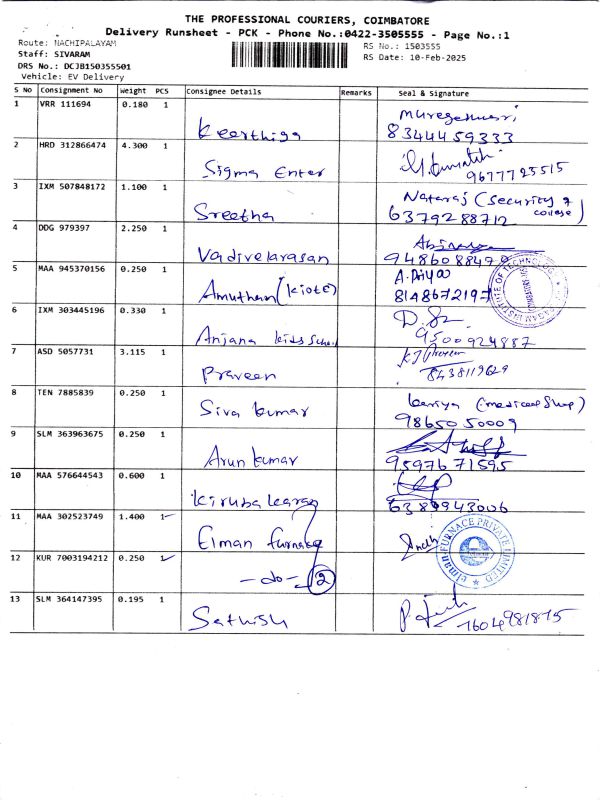 THE PROFESSIONAL COURIERS, COIMBATORE
Delivery Runsheet - PCK - Phone No.:0422-3505555 - Page No.:1
Route: NACHIPALAYAM
RS No.: 1503555
Staff: SIVARAM
RS Date: 10-Feb-2025
DRS No.: DCJB150355501
Vehicle: EV Delivery
S No Consignment No Weight PCS Consignee Details Remarks Seal & Signature
1 VRR 111694 0.180 1 Keerthiga
8344459333
2 HRD 312866474 4.300 1 Sigma Enter
9677725515
3 IXM 507848172 1.100 1 Sreetha Nataraj (Security of college)
6379288712
4 DDG 979397 2.250 1 Vadivelarasan
5 MAA 945370156 0.250 1 Amuthan (Kiote) A. Priya
8148672197
6 IXM 303445196 0.330 1 Anjana kids School
9500924887
7 ASD 5057731 3.115 1 Praveen
8438119629
8 TEN 7885839 0.250 1 Siva kumar (medical shop)
9865050009
9 SLM 363963675 0.250 1 Arun kumar
9597671595
10 MAA 576644543 0.600 1 Kirubakaran
6380943006
11 MAA 302523749 1.400 1 Elman furnace
elman FURNACE PRIVATE LIMITED
12 KUR 7003194212 0.250 1 -do- 2
13 SLM 364147395 0.195 1 Sathish
7604981875